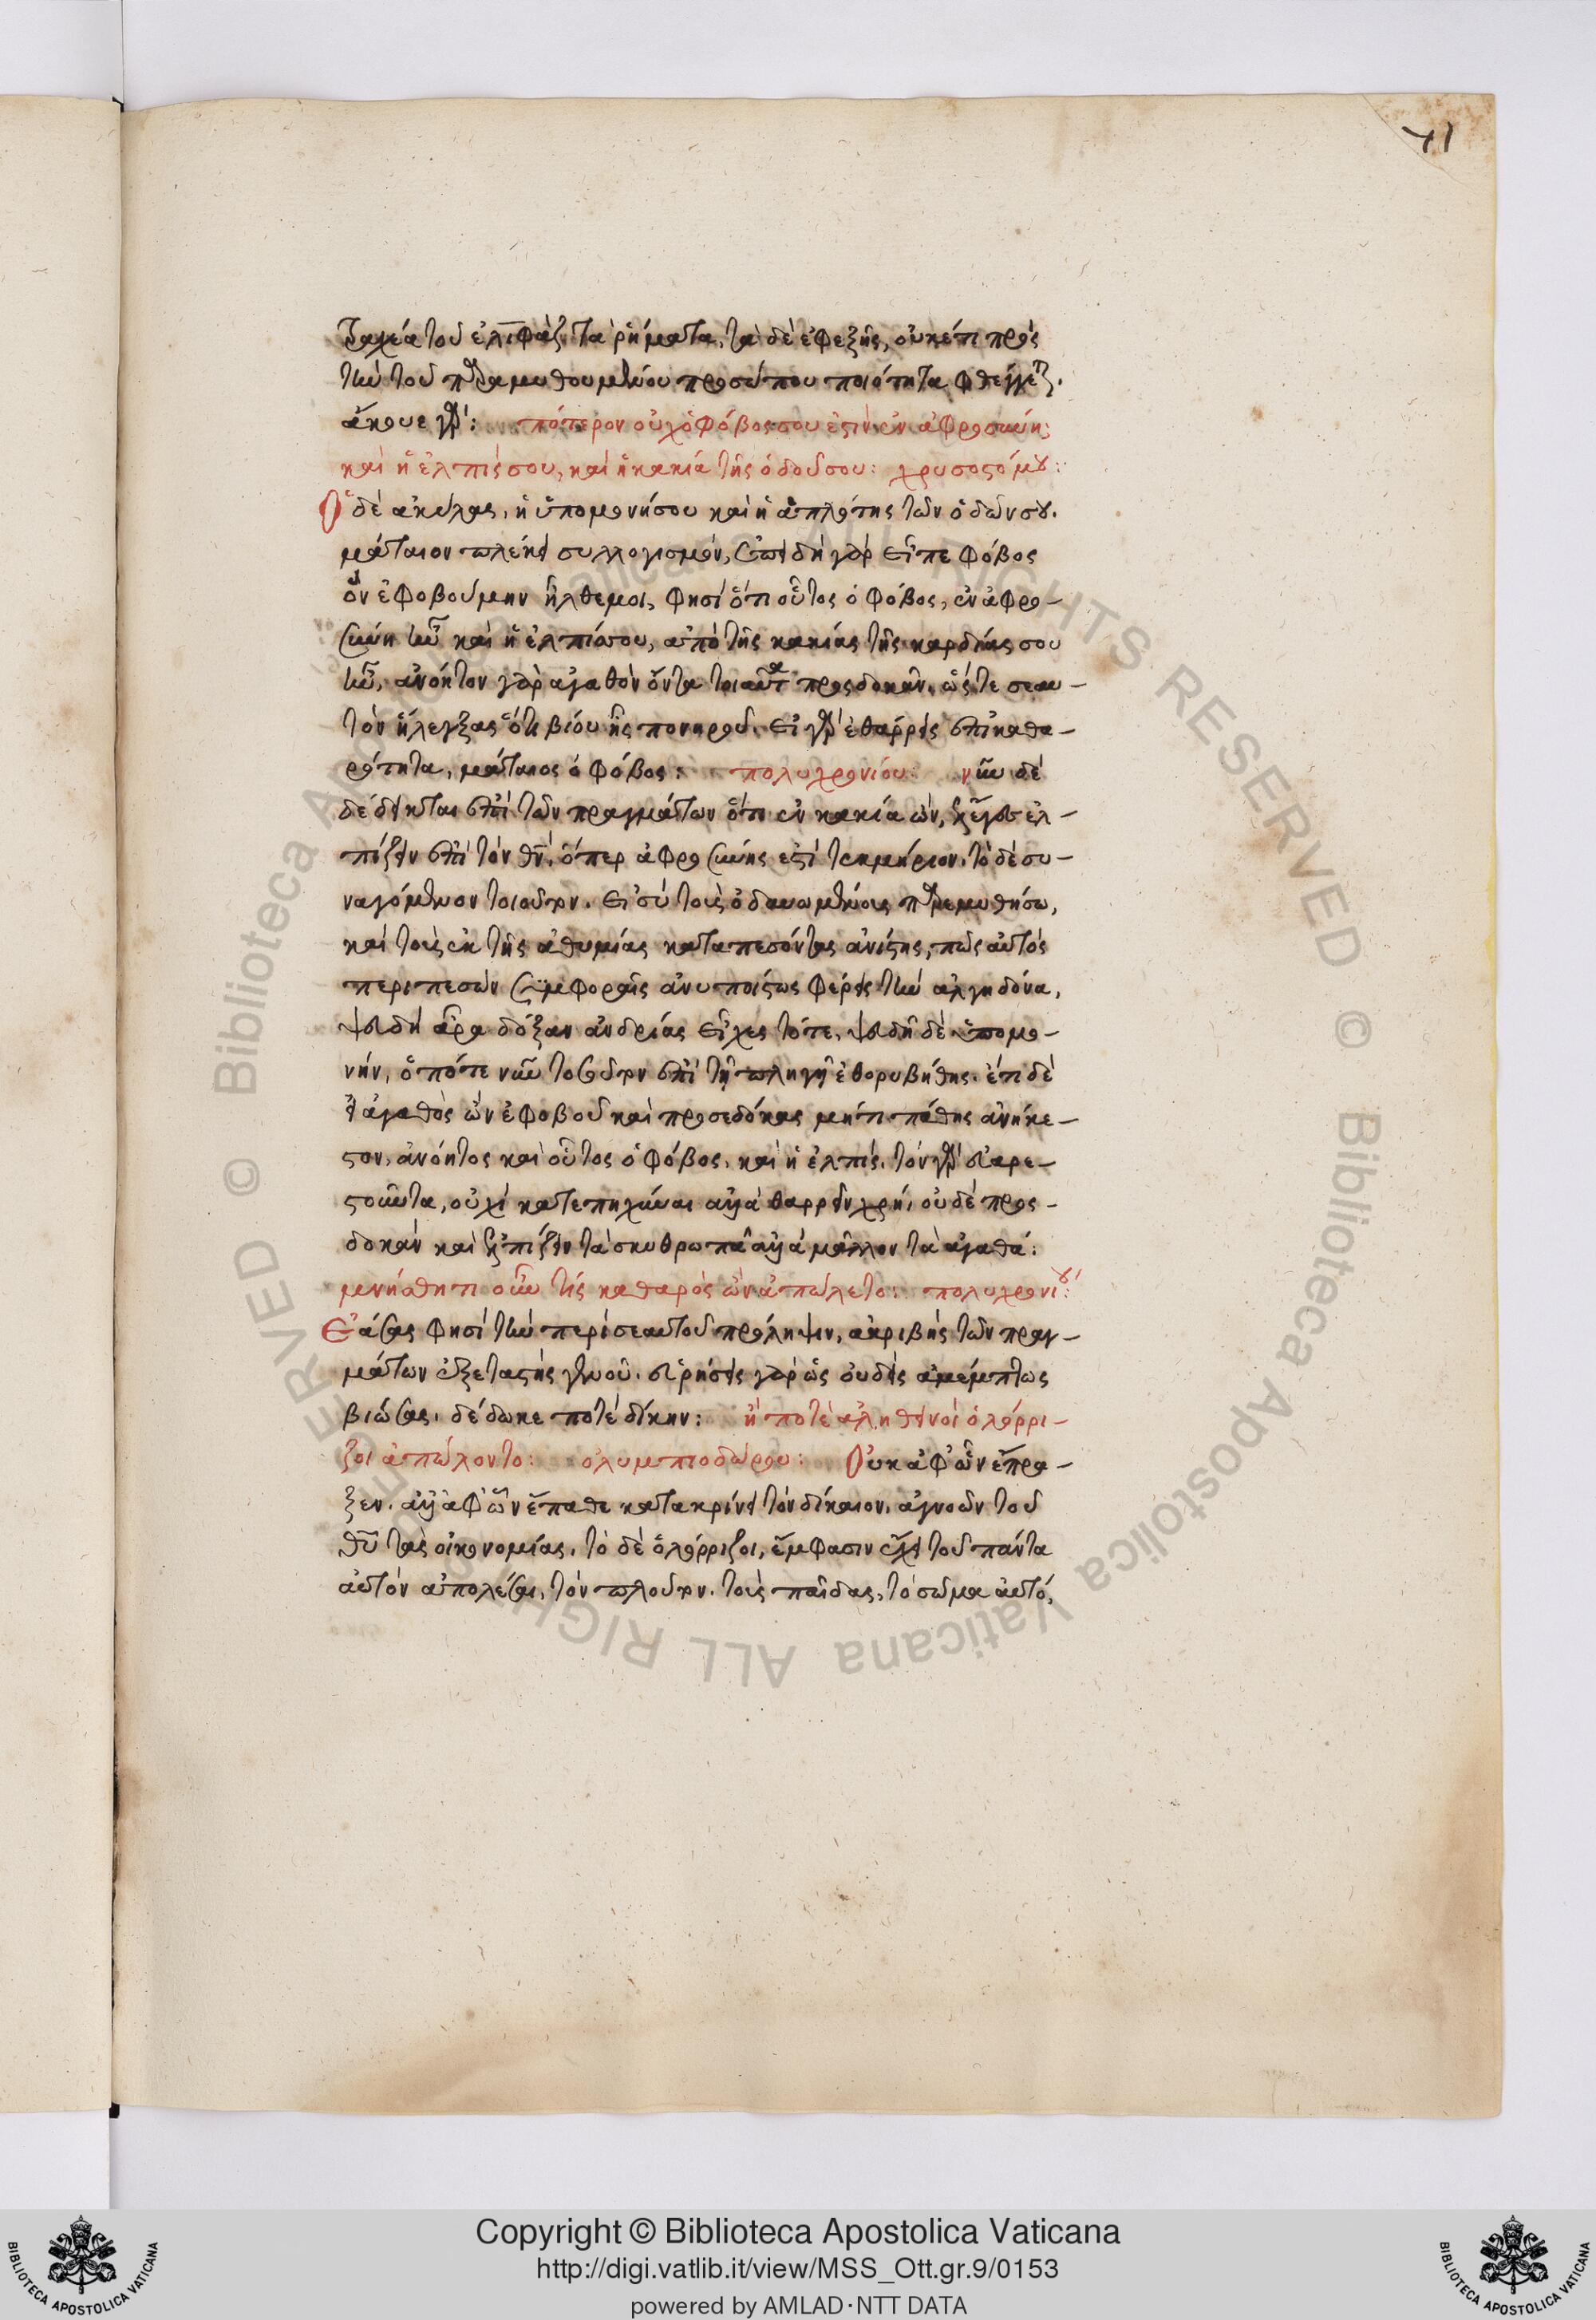 71
τραχέα τοῦ ἐλιφὰζ τὰ ῥήματα, τὰ δὲ ἐφεξῆς, οὐκέτι πρὸς
τὴν τοῦ παραμυθουμένου προσώπου ποιότητα φθέγγεται.
ἄκουε γάρ: πότερον οὐχ ὁ φόβος σου ἐστὶν ἐν ἀφροσύνη;
καὶ ἡ ἐλπίς σου, καὶ ἡ κακία τῆς ὁδοῦ σου: χρυσοστόμου:
Ὁ δὲ ἀκύλας, ἡ ὑπομονή σου καὶ ἡ ἁπλότης τῶν ὁδῶν σου.
μάταιον πλέκει συλλογισμόν, ἐπειδὴ γὰρ εἶπε φόβος
ὃν ἐφοβούμην ἦλθε μοι, φησὶ ὅτι οὗτος ὁ φόβος, ἐν ἀφρο-
σύνη ἦν καὶ ἡ ἐλπίς σου, ἀπὸ τῆς κακίας τῆς καρδίας σου
ἦν, ἀνόητον γὰρ ἀγαθὸν ὄντα τοιαῦτα προσδοκᾶν, ὥστε σεαυ-
τὸν ἤλεγξας ὅτι βίου ἦς πονηροῦ. εἰ γὰρ ἐθάρρεις ἐπὶ καθα-
ρότητα, μάταιος ὁ φόβος: πολυχρονίου: νῦν δὲ
δέδεικται ἐπὶ τῶν πραγμάτων ὅτι ἐν κακία ὤν, ἔλεγες ἐλ-
πίζειν ἐπὶ τὸν θν, ὅπερ ἀφροσύνης ἐστὶ τεκμήριον. τὸ δὲ συ-
ναγόμενον τοιοῦτον. εἰ σὺ τοὺς ὀδυνωμένους παρεμυθήσω,
καὶ τοὺς ἐκ τῆς ἀθυμίας καταπεσόντας ἀνίστης, πῶς αὐτὸς
περιπεσὼν συμφοραῖς ἀνυποίστως φέρεις τὴν ἀλγηδόνα,
ψευδῆ ἄρα δόξαν ἀνδρίας εἶχες τότε, ψευδῆ δὲ ὑπομο-
νήν, ὁπότε νῦν τοσοῦτον ἐπὶ τῆ πληγῆ ἐθορυβήθης. ἔτι δὲ
εἰ ἀγαθὸς ὢν ἐφοβοῦ καὶ προσεδόκας μήτι πάθης ἀνήκε-
στον, ἀνόητος καὶ οὗτος ὁ φόβος, καὶ ἡ ἐλπίς. τὸν γὰρ εὐαρε-
στοῦντα, οὐχὶ κατεπτηχέναι ἀλλὰ θαρρεῖν χρή, οὐδὲ προσ-
δοκᾶν καὶ ἐλπίζειν τὰ σκυθρωπὰ ἀλλὰ μᾶλλον τὰ ἀγαθά:
μνήσθητι οὖν τίς καθαρὸς ὢν ἀπώλετο: πολυχρονίου:
Ἐάσας φησὶ τὴν περὶ σεαυτοῦ πρόληψιν, ἀκριβὴς τῶν πραγ-
μάτων ἐξεταστὴς γενοῦ. εὑρήσεις γὰρ ὡς οὐδεὶς ἀμέμπτως
βιώσας, δέδωκε ποτὲ δίκην: ἢ ποτὲ ἀληθινοὶ ὁλόρρι-
ζοι ἀπώλοντο: ὀλυμπιοδώρου: Οὐκ ἀφ' ὧν ἔπρα-
ξεν, ἀλλ' ἀφ' ὧν ἔπαθε κατακρίνει τὸν δίκαιον, ἀγνοῶν τοῦ
θυ τὰς οἰκονομίας. τὸ δὲ ὁλόρριζοι, ἔμφασιν ἔχει τοῦ πάντα
αὐτὸν ἀπολέσαι, τὸν πλοῦτον. τοὺς παῖδας, τὸ σῶμα αὐτό,
Copyright © Biblioteca Apostolica Vaticana
http://digi.vatlib.it/view/MSS_Ott.gr.9/0153
powered by AMLAD·NTT DATA
BIBLIOTECA APOSTOLICA VATICANA
BIBLIOTECA APOSTOLICA VATICANA
© Biblioteca Apostolica Vaticana ALL RIGHTS RESERVED © Biblioteca Apostolica Vaticana ALL RIGHTS RESERVED